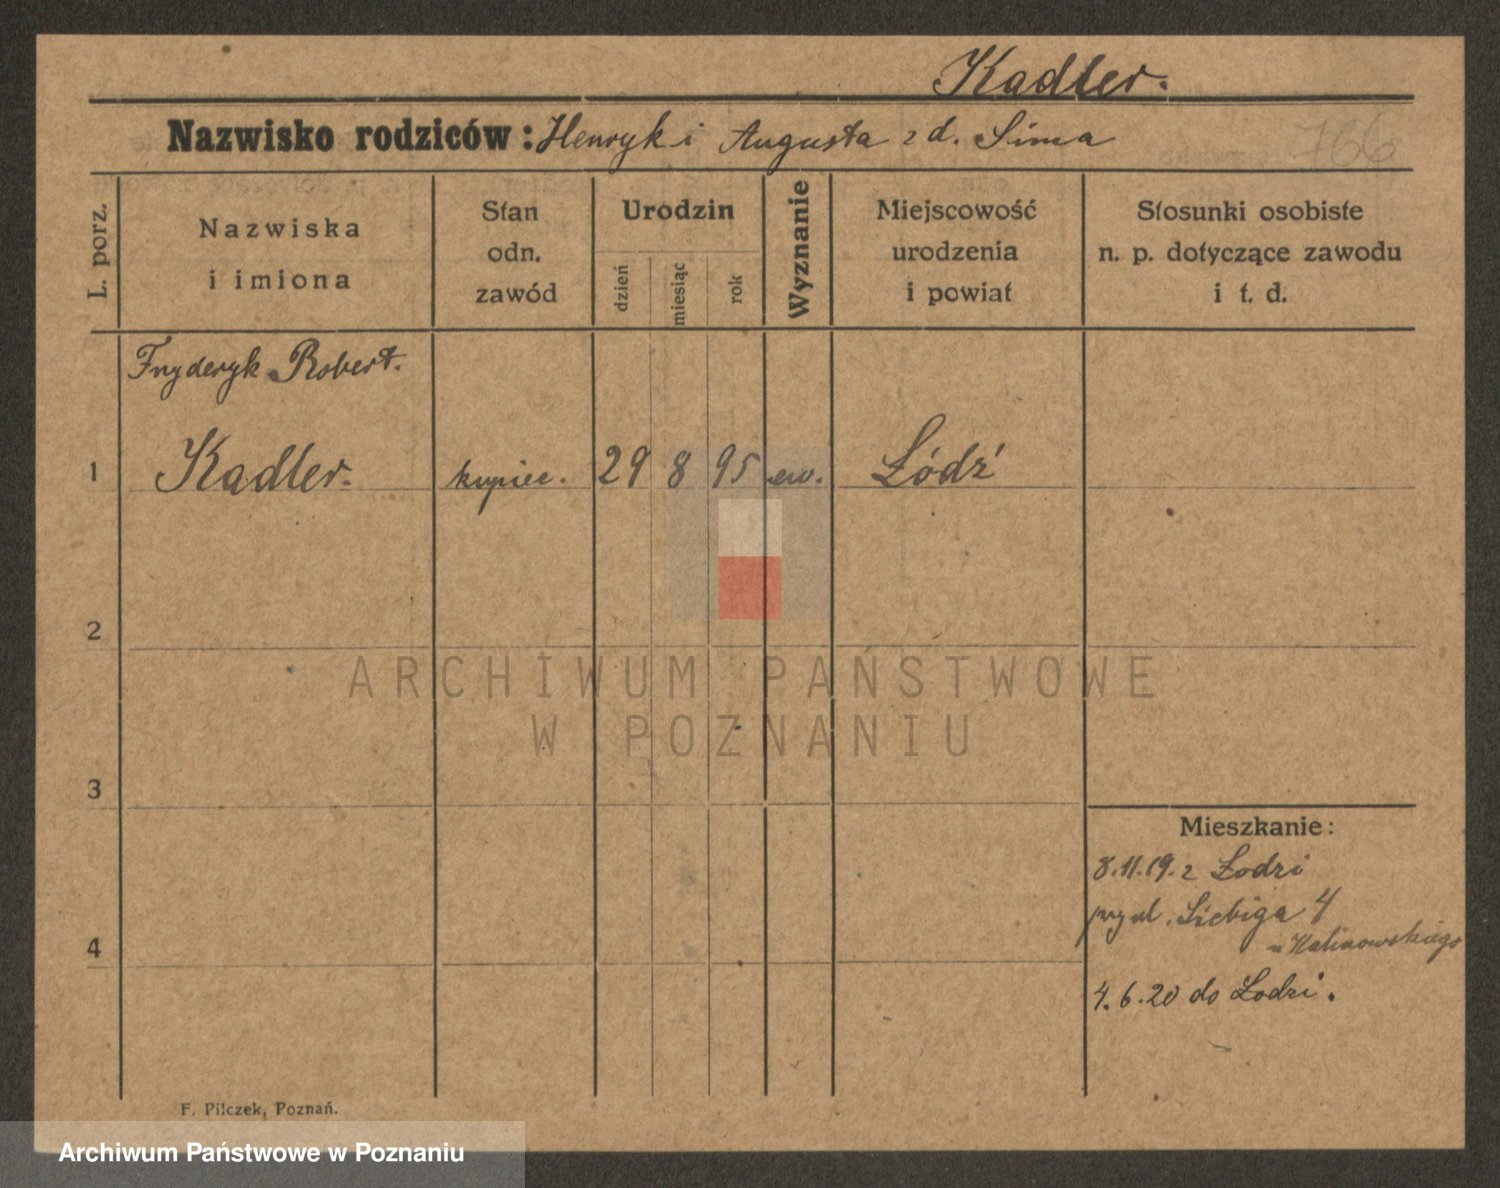 Kadler.
Nazwisko rodziców: Henryk i Augusta z d. Sima
766
L. porz.
Nazwiska
i imiona
Stan
odn.
zawód
Urodzin
dzień
miesiąc
rok
Wyznanie
Miejscowość
urodzenia
i powiat
Stosunki osobiste
n. p. dotyczące zawodu
i t. d.
Fryderyk Robert.
1 Kadler. kupiec. 29 8 95 ew. Łódź
2
ARCHIWUM PAŃSTWOWE
W POZNANIU
3
Mieszkanie:
8.11.19. z Łodzi
przy ul. Liebiga 4
u Kalinowskiego
4
4.6.20 do Łodzi.
F. Pilczek, Poznań.
Archiwum Państwowe w Poznaniu